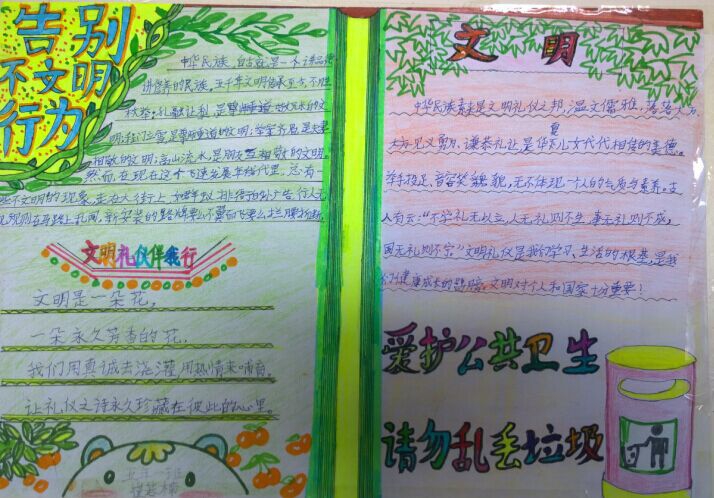 告别
不文明
行为
中华民族，自古就是一个讲品德
讲修养的民族，五千年文明传承至今，不胜
枚举：孔融让梨，是尊敬
明；程门立雪，是尊师重道的文明；举案齐眉，是夫妻
相敬的文明；高山流水，是朋友互相敬的文明。
然而，在现在这个飞速发展年代里，总有一
些不文明的现象，走在大街上，
文明礼仪伴我行
文明是一朵花，
一朵永久芳香的花，
我们用真诚去浇灌，用热情来哺育。
让礼仪之诗永久珍藏在彼此的心里。
五年一班
文明
中华民族素来是文明礼仪之邦，温文儒雅，落落大方
见义勇为、谦恭礼让，是华夏儿女代代相传的美德。
举手投足、音容笑貌，无不体现一个人的气质与素养。古
人有云："不学礼无以立，人无礼则不生，事无礼则不成，
国无礼则不宁。"文明礼仪是我们学习、生活的根基，是我
们健康成长的臂膀。文明对个人和国家十分重要！
爱护公共卫生
请勿乱丢垃圾